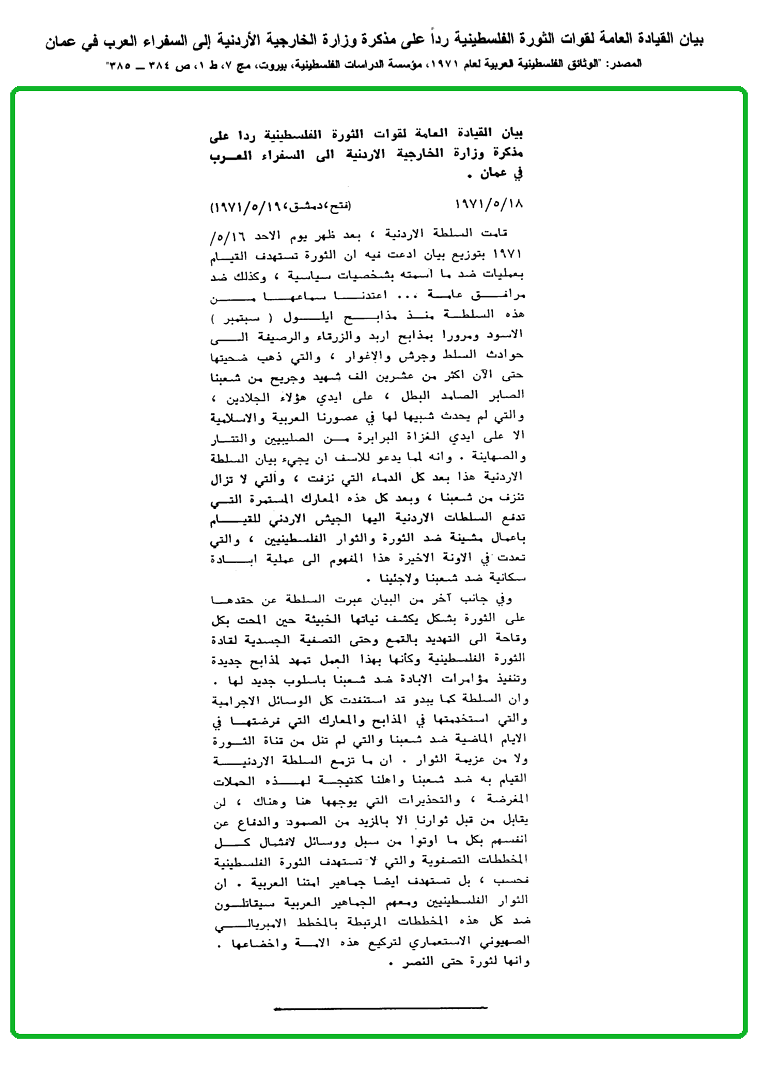 بيان القيادة العامة لقوات الثورة الفلسطينية رداً على مذكرة وزارة الخارجية الأردنية إلى السفراء العرب في عمان
المصدر: "الوثائق الفلسطينية العربية لعام ١٩٧١، مؤسسة الدراسات الفلسطينية، بيروت، مج ٧، ط ١، ص ٣٨٤ ــ ٣٨٥"
بيان القيادة العامة لقوات الثورة الفلسطينية ردا على
مذكرة وزارة الخارجية الاردنية الى السفراء العرب
في عمان .
١٩٧١/٥/١٨ (فتح، دمشق، ١٩٧١/٥/١٩)
قامت السلطة الاردنية ، بعد ظهر يوم الاحد ٥/١٦/
١٩٧١ بتوزيع بيان ادعت فيه ان الثورة تستهدف القيام
بعمليات ضد ما اسمته بشخصيات سياسية ، وكذلك ضد
مرافق عامة ... اعتدنا سماعها من
هذه السلطة منذ مذابح ايلول ( سبتمبر )
الاسود ومرورا بمذابح اربد والزرقاء والرصيفة الى
حوادث السلط وجرش والاغوار ، والتي ذهب ضحيتها
حتى الآن اكثر من عشرين الف شهيد وجريح من شعبنا
الصابر الصامد البطل ، على ايدي هؤلاء الجلادين ،
والتي لم يحدث شبيها لها في عصورنا العربية والاسلامية
الا على ايدي الغزاة البرابرة من الصليبيين والتتار
والصهاينة . وانه لما يدعو للاسف ان يجيء بيان السلطة
الاردنية هذا بعد كل الدماء التي نزفت ، والتي لا تزال
تنزف من شعبنا ، وبعد كل هذه المعارك المستمرة التي
تدفع السلطات الاردنية اليها الجيش الاردني للقيام
باعمال مشينة ضد الثورة والثوار الفلسطينيين ، والتي
تعدت في الاونة الاخيرة هذا المفهوم الى عملية ابادة
سكانية ضد شعبنا ولاجئينا .
وفي جانب آخر من البيان عبرت السلطة عن حقدها
على الثورة بشكل يكشف نياتها الخبيثة حين المحت بكل
وقاحة الى التهديد بالقمع وحتى التصفية الجسدية لقادة
الثورة الفلسطينية وكأنها بهذا العمل تمهد لمذابح جديدة
وتنفيذ مؤامرات الابادة ضد شعبنا باسلوب جديد لها .
وان السلطة كما يبدو قد استنفدت كل الوسائل الاجرامية
والتي استخدمتها في المذابح والمعارك التي فرضتها في
الايام الماضية ضد شعبنا والتي لم تنل من قناة الثورة
ولا من عزيمة الثوار . ان ما تزمع السلطة الاردنية
القيام به ضد شعبنا واهلنا كنتيجة لهذه الحملات
المغرضة ، والتحذيرات التي يوجهها هنا وهناك ، لن
يقابل من قبل ثوارنا الا بالمزيد من الصمود والدفاع عن
انفسهم بكل ما اوتوا من سبل ووسائل لافشال كل
المخططات التصفوية والتي لا تستهدف الثورة الفلسطينية
فحسب ، بل تستهدف ايضا جماهير امتنا العربية . ان
الثوار الفلسطينيين ومعهم الجماهير العربية سيقاتلون
ضد كل هذه المخططات المرتبطة بالمخطط الامبريالي
الصهيوني الاستعماري لتركيع هذه الامة واخضاعها .
وانها لثورة حتى النصر .